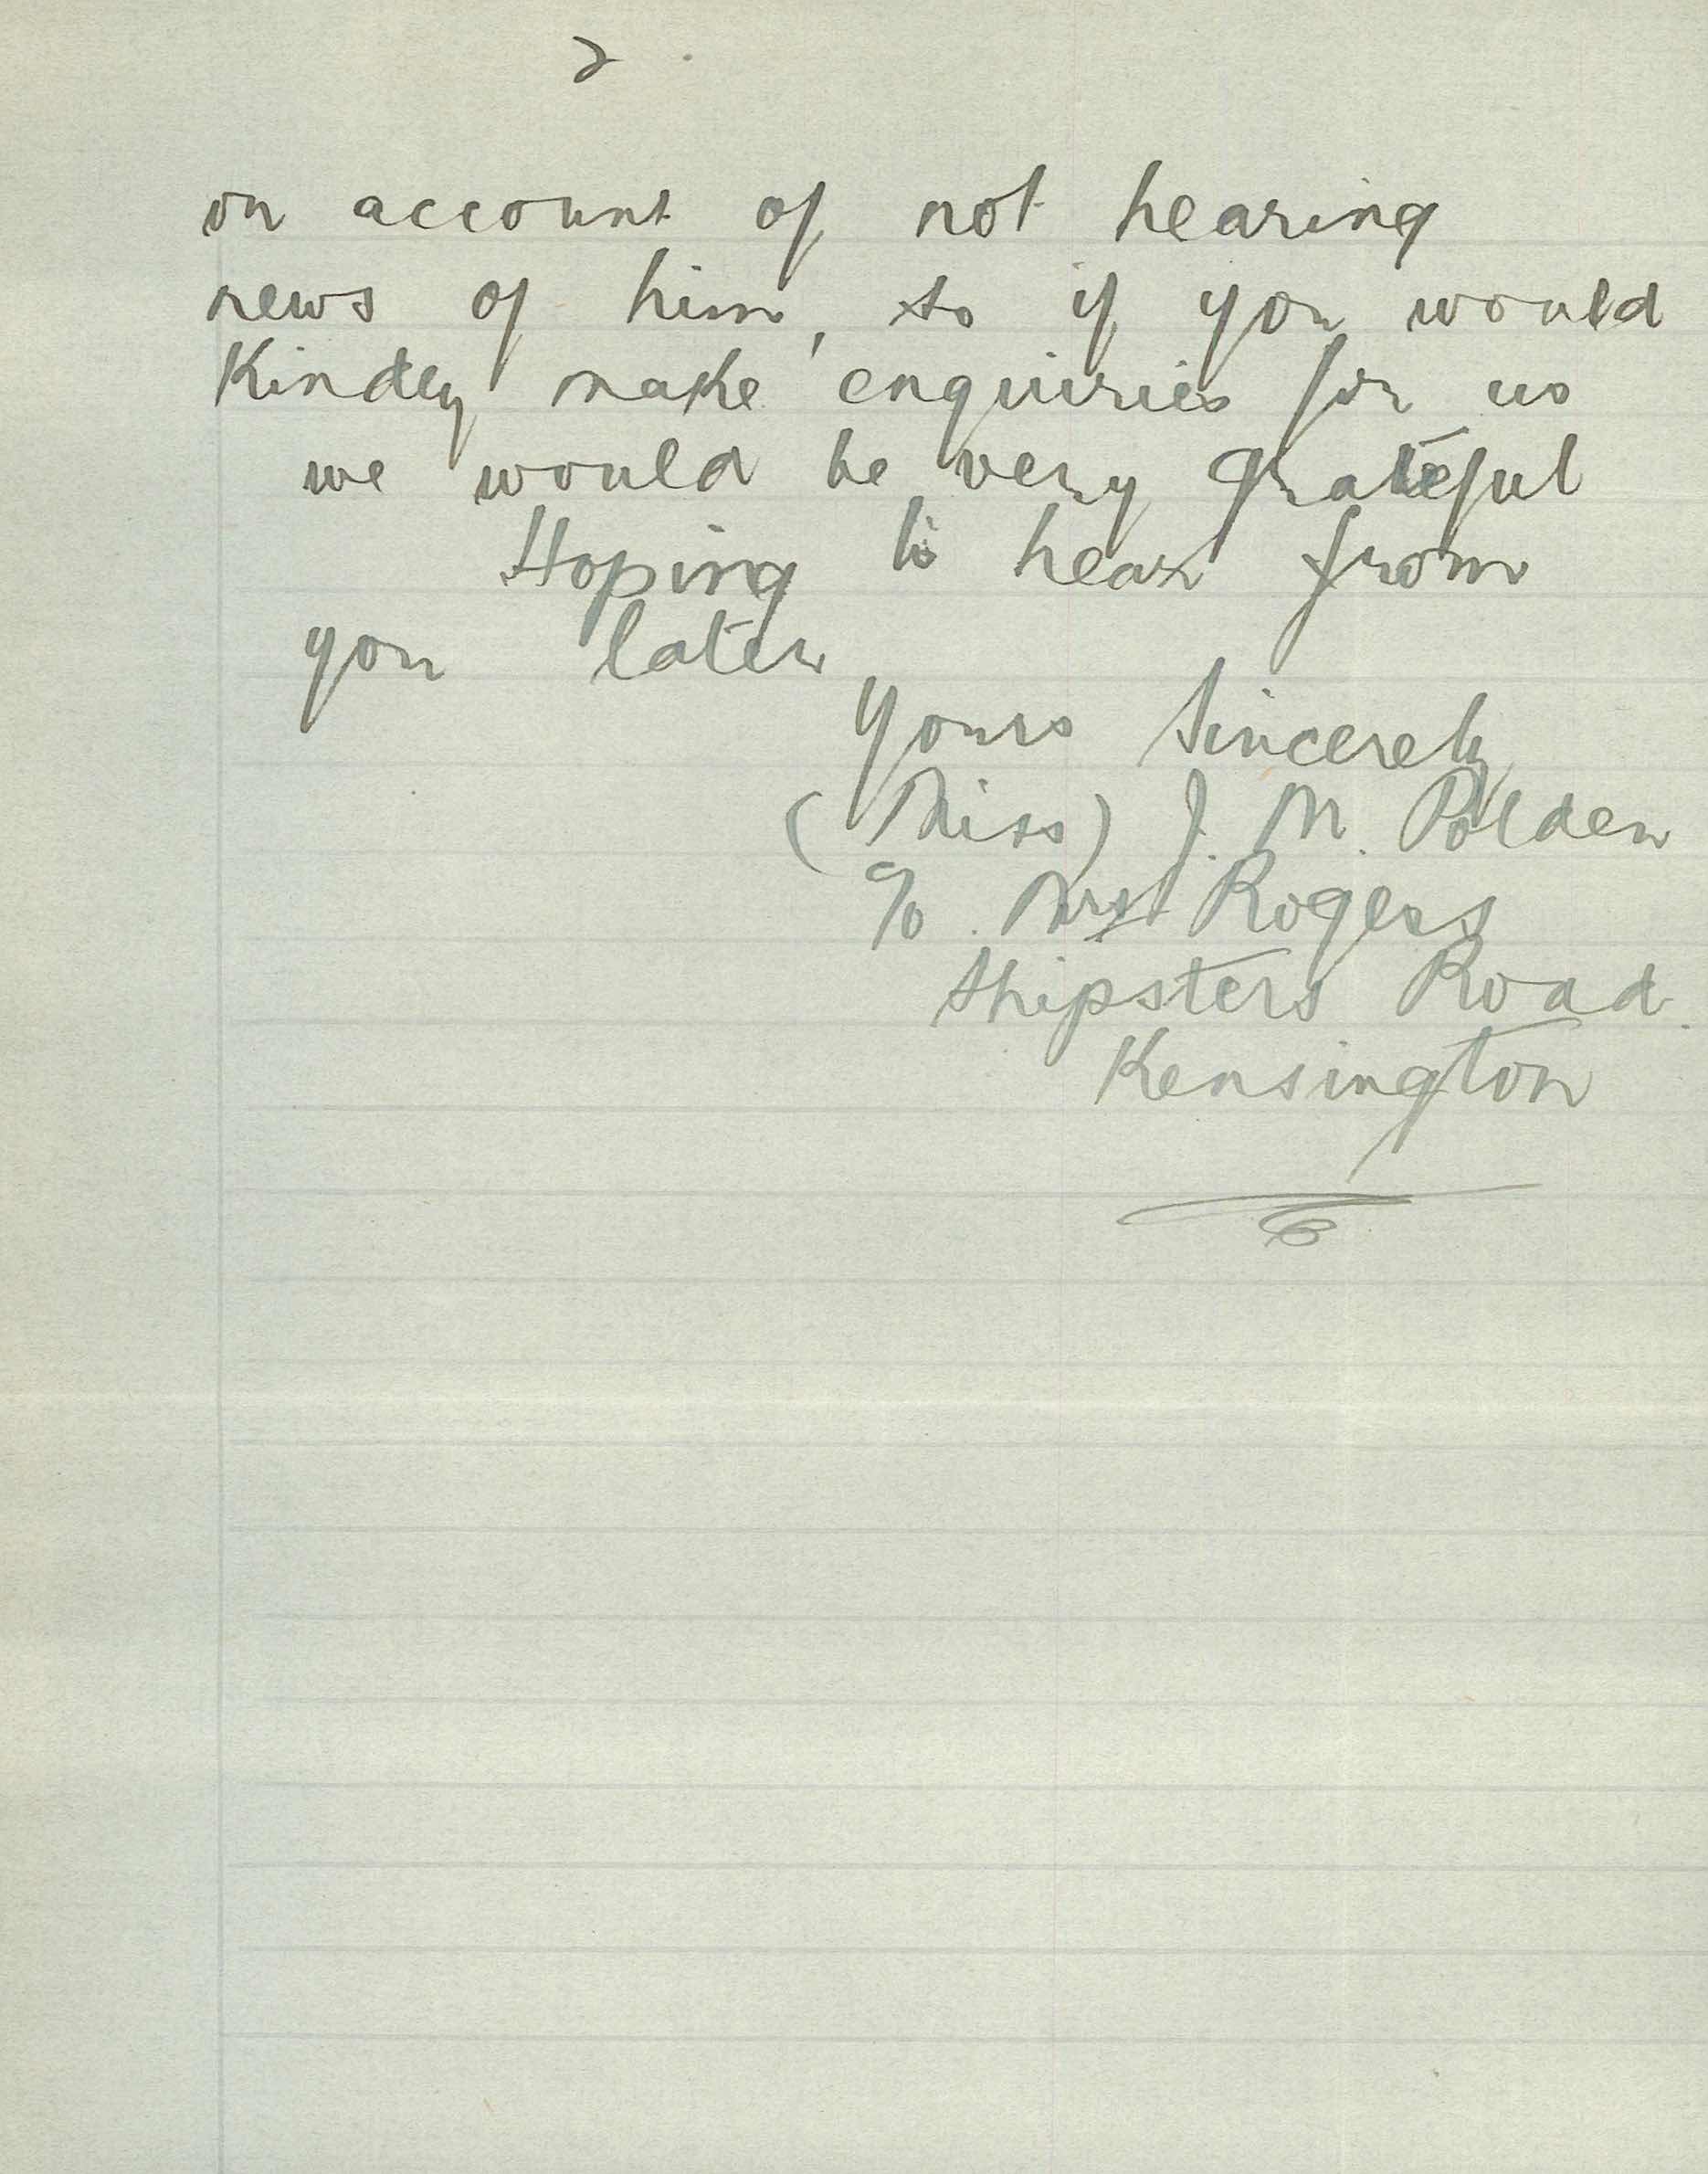 2.
on account of not hearing
news of him, so if you would
Kindly make enquiries for us
we would be very grateful
Hoping to hear from
you later
Yours Sincerely
(Miss) J. M. Polden
c/o Mrs Rogers
Shipsters Road.
Kensington